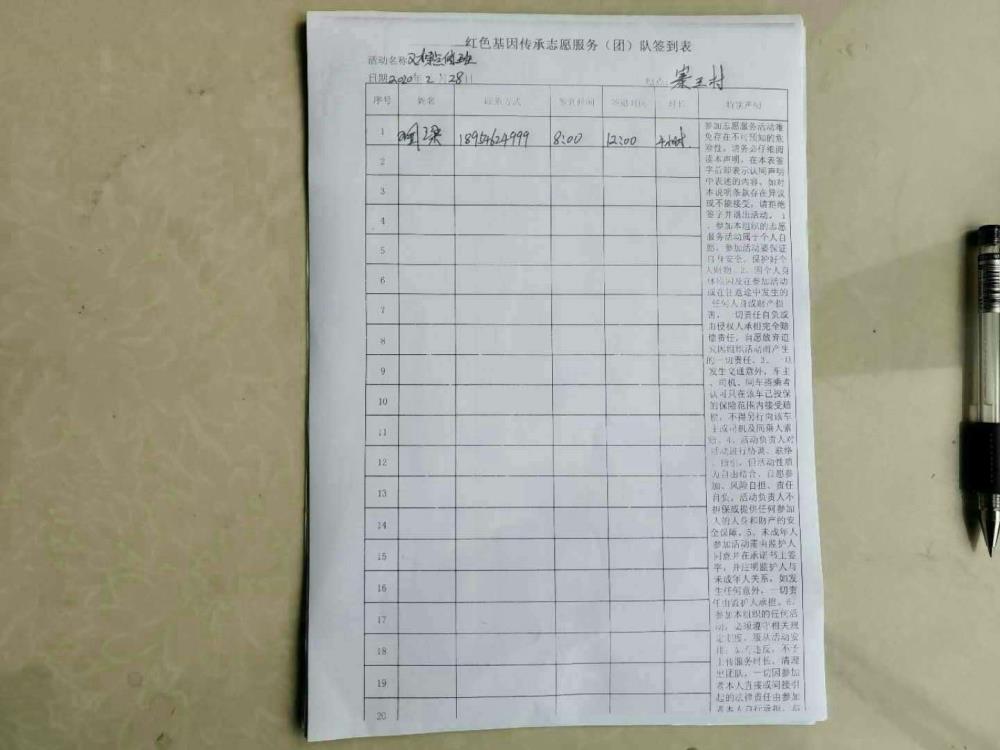 红色基因传承志愿服务（团）队签到表
活动名称 双保点值班
日期2020年2月28日
地点： 寨王村
序号 姓名 联系方式 签到时间 签退时间 时长 特别声明
1 18954624999 8:00 12:00 4小时
2
3
4
5
6
7
8
9
10
11
12
13
14
15
16
17
18
19
20
参加志愿服务活动难
免存在不可预知的危
险性，请务必仔细阅
读本声明，在本表签
字后即表示认同声明
中表述的内容，如对
本说明条款存在异议
或不能接受，请拒绝
签字并退出活动。1
、参加本组织的志愿
服务活动属于个人自
愿，参加活动要保证
自身安全，保护好个
人财物。2、因个人身
体原因及在参加活动
或在往返途中发生的
任何人身或财产损
害，一切责任自负或
由侵权人承担完全赔
偿责任，自愿放弃追
究因组织活动而产生
的一切责任。3、一旦
发生交通意外，车主
、司机、同车搭乘者
认可只在该车已投保
的保险范围内接受赔
偿，不得另行向该车
主或司机及同乘人索
赔。4、活动负责人对
活动进行协调、联络
、指引，但活动性质
为自由结合、自愿参
加、风险自担、责任
自负，活动负责人不
担保或提供任何参加
人的人身和财产的安
全保障。5、未成年人
参加活动需由监护人
同意并在承诺书上签
字，并注明监护人与
未成年人关系，如发
生任何意外，一切责
任由监护人承担。6、
参加本组织的任何活
动，必须遵守相关规
定制度，服从活动安
排；如有违反，不予
上传服务时长、清理
出团队，一切因参加
者本人直接或间接引
起的法律责任由参加
者本人自行承担。